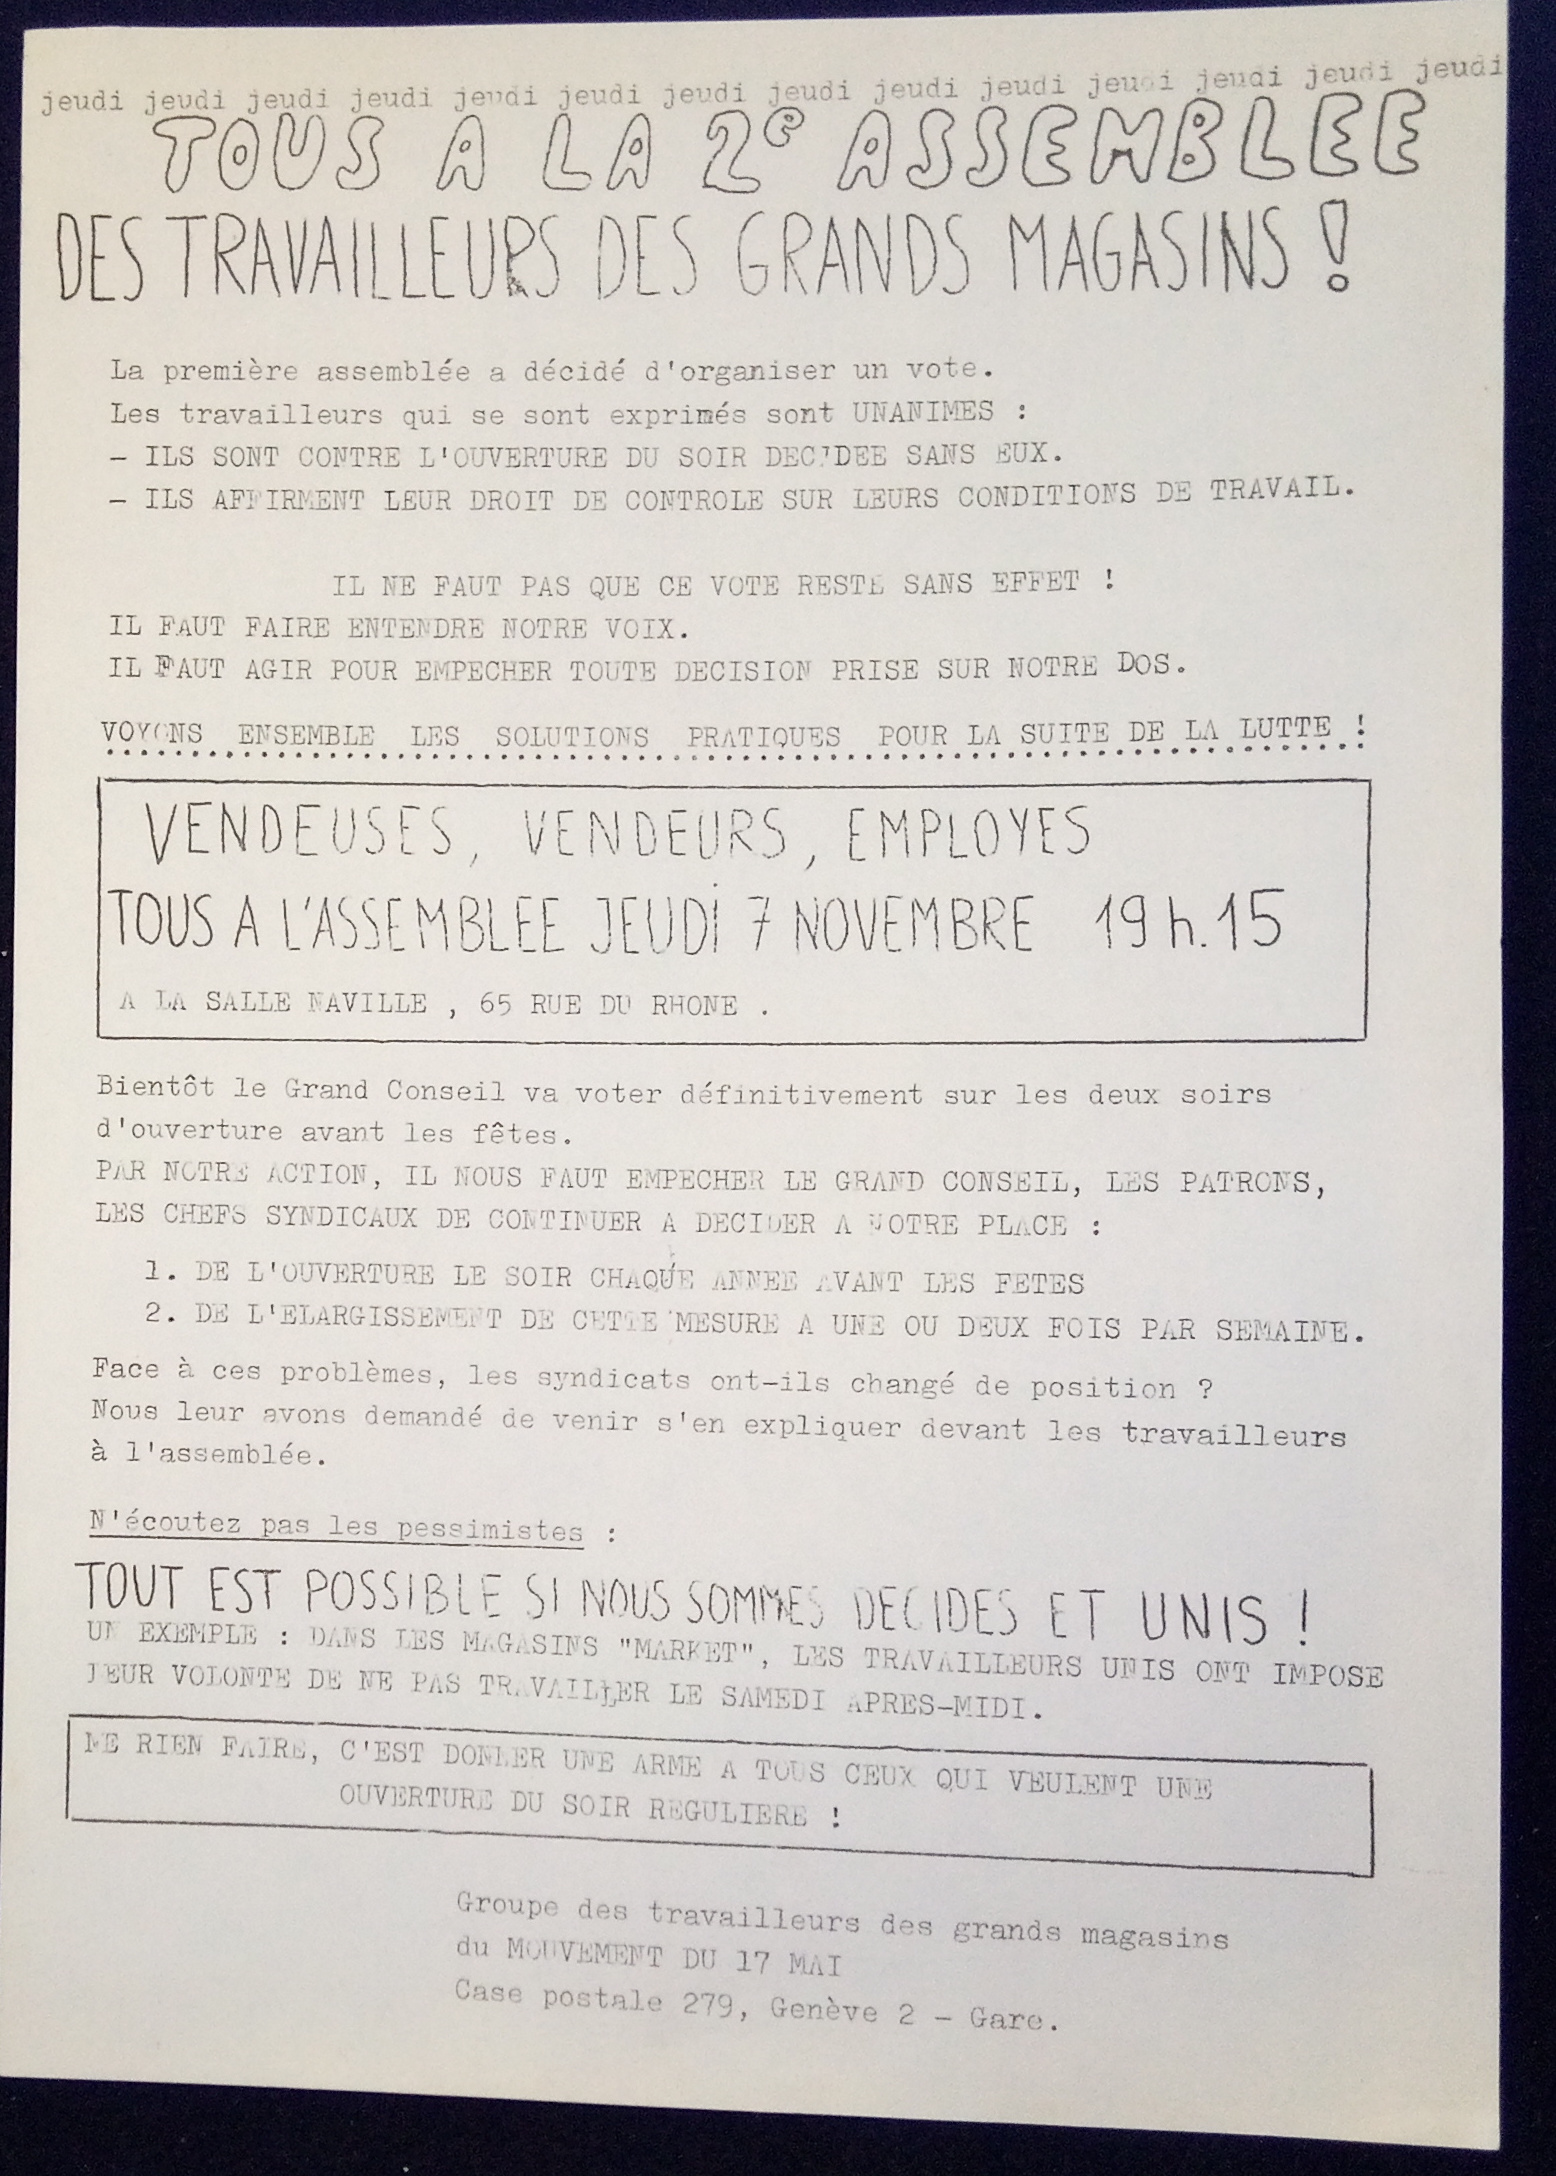 jeudi jeudi jeudi jeudi jeudi jeudi jeudi jeudi jeudi jeudi jeudi jeudi jeudi jeudi
TOUS A LA 2e ASSEMBLEE
DES TRAVAILLEURS DES GRANDS MAGASINS !
La première assemblée a décidé d'organiser un vote.
Les travailleurs qui se sont exprimés sont UNANIMES :
- ILS SONT CONTRE L'OUVERTURE DU SOIR DECIDEE SANS EUX.
- ILS AFFIRMENT LEUR DROIT DE CONTROLE SUR LEURS CONDITIONS DE TRAVAIL.
IL NE FAUT PAS QUE CE VOTE RESTE SANS EFFET !
IL FAUT FAIRE ENTENDRE NOTRE VOIX.
IL FAUT AGIR POUR EMPECHER TOUTE DECISION PRISE SUR NOTRE DOS.
VOYONS ENSEMBLE LES SOLUTIONS PRATIQUES POUR LA SUITE DE LA LUTTE !
VENDEUSES, VENDEURS, EMPLOYES
TOUS A L'ASSEMBLEE JEUDI 7 NOVEMBRE 19 h. 15
A LA SALLE NAVILLE , 65 RUE DU RHONE .
Bientôt le Grand Conseil va voter définitivement sur les deux soirs
d'ouverture avant les fêtes.
PAR NOTRE ACTION, IL NOUS FAUT EMPECHER LE GRAND CONSEIL, LES PATRONS,
LES CHEFS SYNDICAUX DE CONTINUER A DECIDER A NOTRE PLACE :
1. DE L'OUVERTURE LE SOIR CHAQUE ANNEE AVANT LES FETES
2. DE L'ELARGISSEMENT DE CETTE MESURE A UNE OU DEUX FOIS PAR SEMAINE.
Face à ces problèmes, les syndicats ont-ils changé de position ?
Nous leur avons demandé de venir s'en expliquer devant les travailleurs
à l'assemblée.
N'écoutez pas les pessimistes :
TOUT EST POSSIBLE SI NOUS SOMMES DECIDES ET UNIS !
UN EXEMPLE : DANS LES MAGASINS "MARKET", LES TRAVAILLEURS UNIS ONT IMPOSE
LEUR VOLONTE DE NE PAS TRAVAILLER LE SAMEDI APRES-MIDI.
NE RIEN FAIRE, C'EST DONNER UNE ARME A TOUS CEUX QUI VEULENT UNE
OUVERTURE DU SOIR REGULIERE !
Groupe des travailleurs des grands magasins
du MOUVEMENT DU 17 MAI
Case postale 279, Genève 2 - Gare.